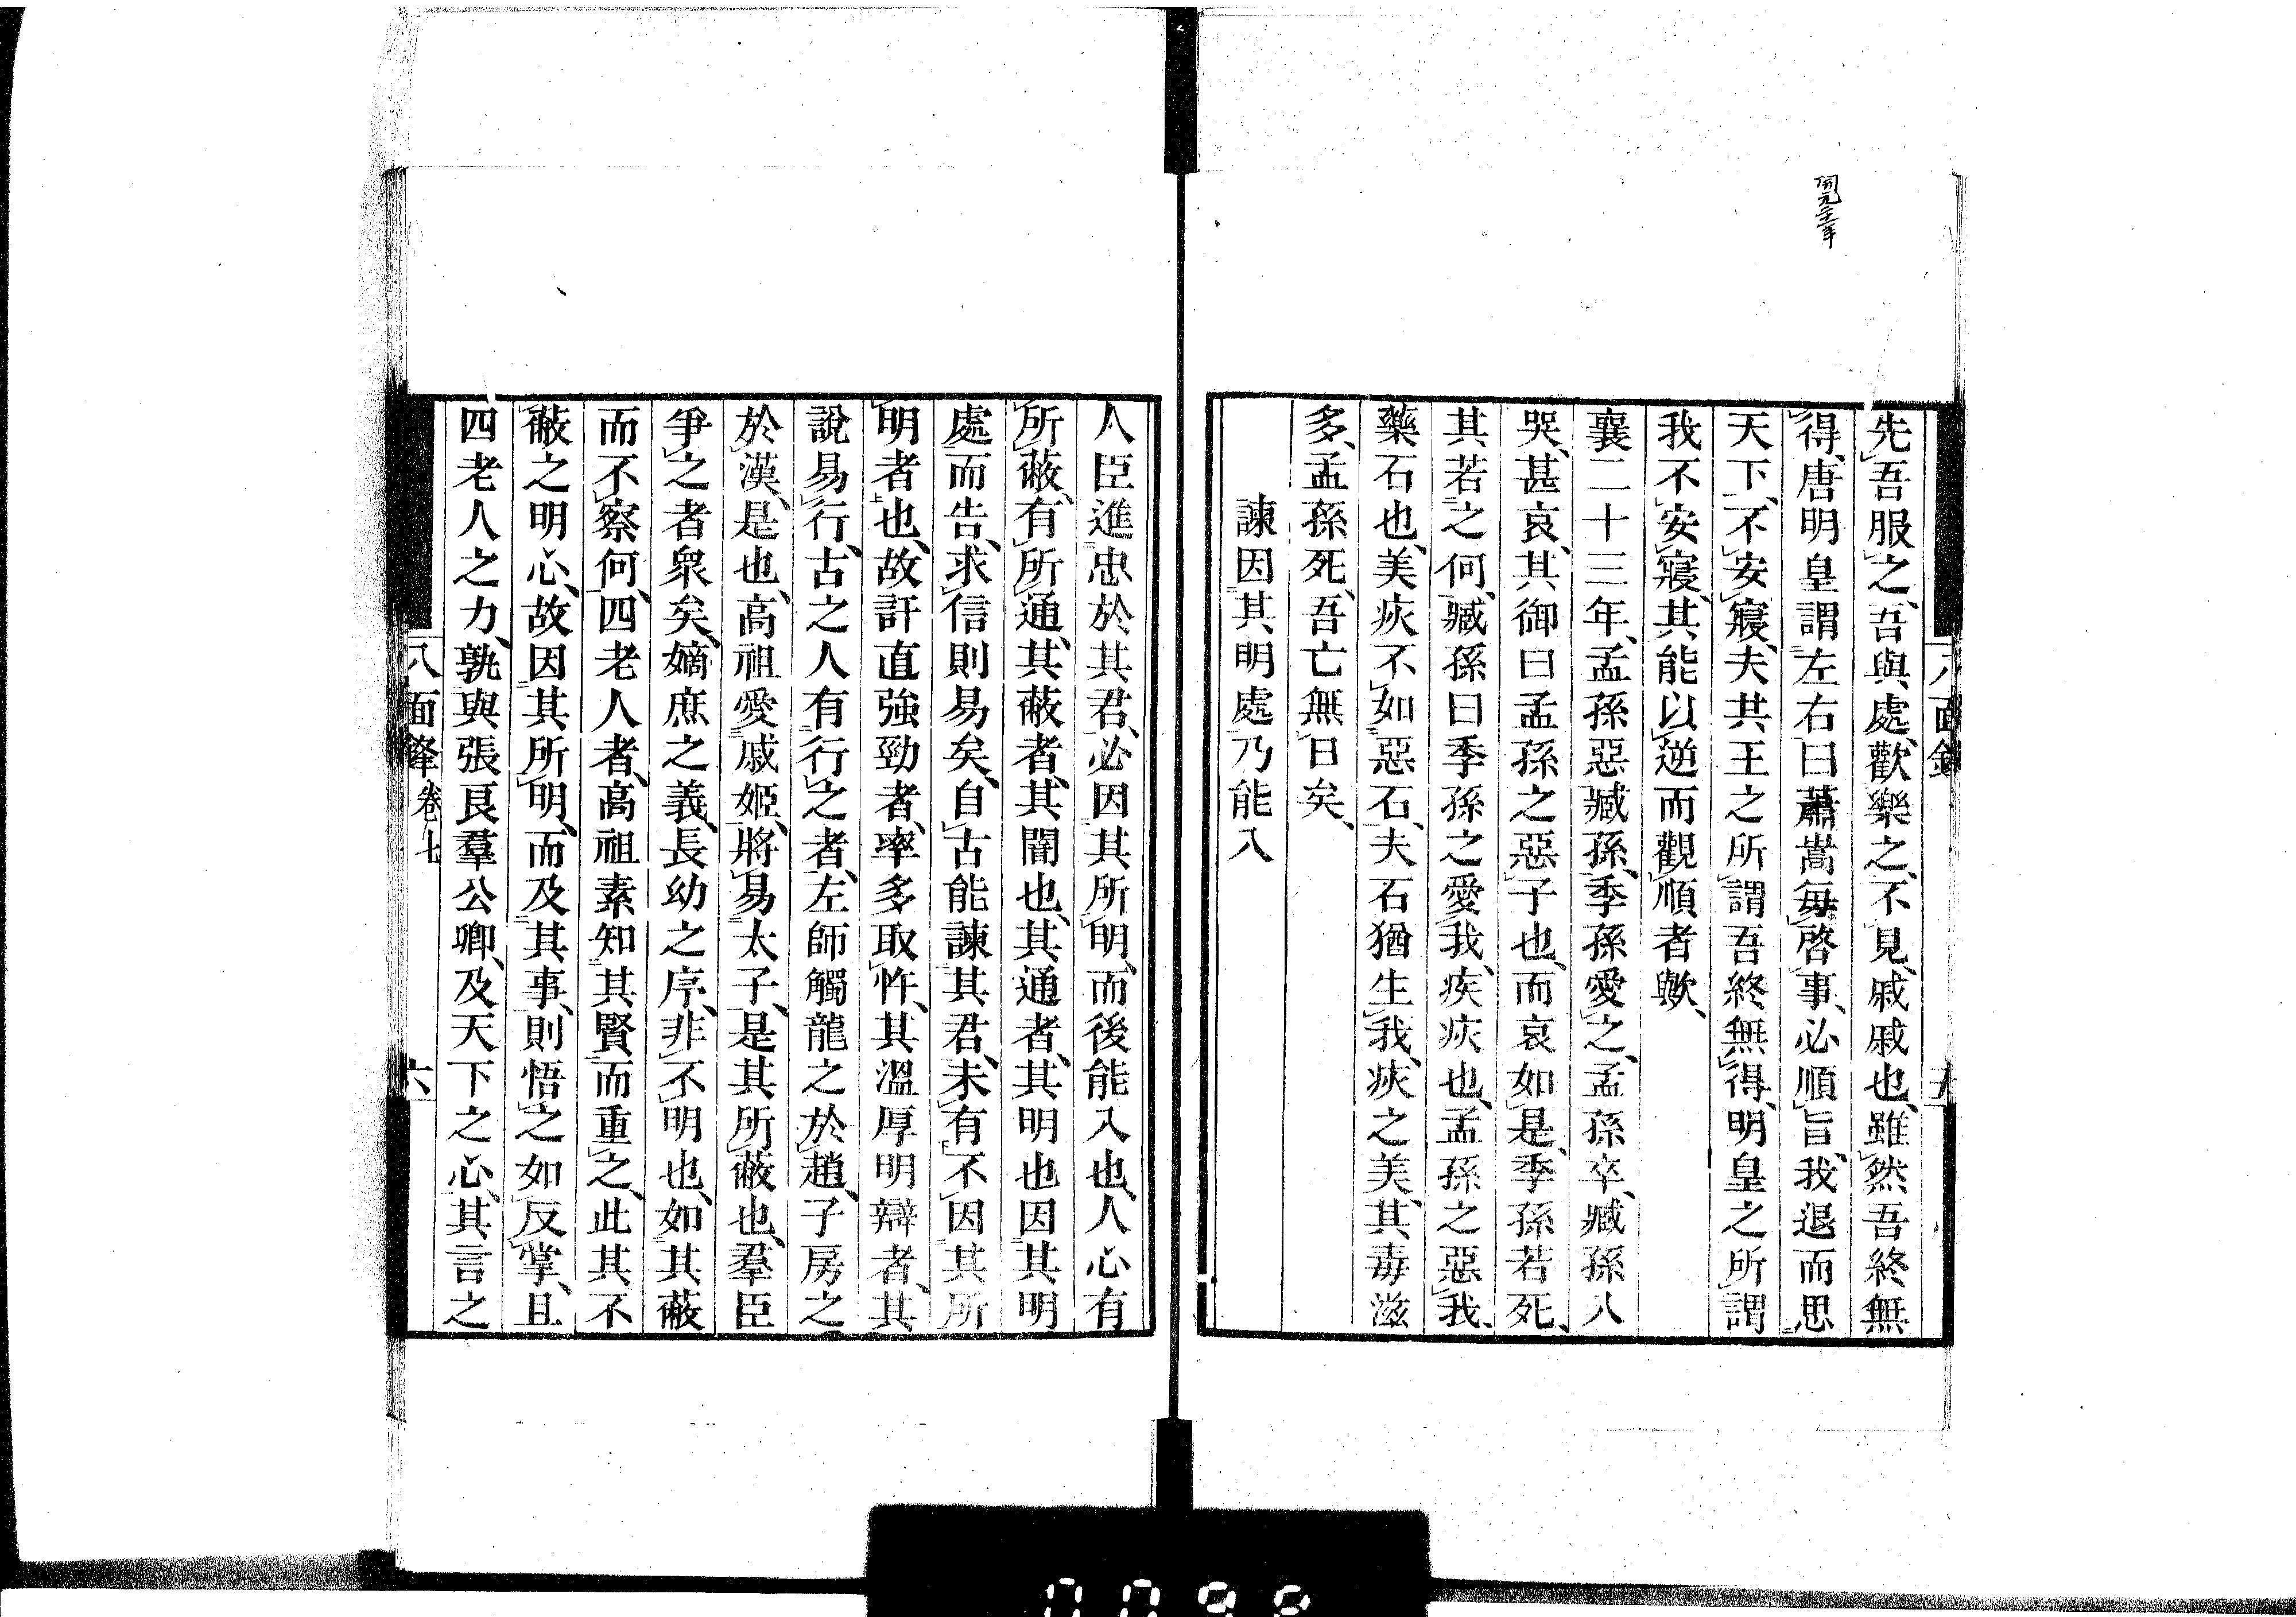 開元二十一年
先吾服之、吾與處、歡樂之、不見戚戚也、雖然吾終無
得、唐明皇謂左右曰蕭嵩每啓事、必順旨、我退而思
天下、不安寢、夫共王之所謂吾終無得、明皇之所謂
我不安寢、其能以逆而觀順者歟、
襄二十三年、孟孫惡臧孫、季孫愛之、孟孫卒、臧孫入
哭、甚哀、其御曰孟孫之惡子也、而哀如是、季孫若死、
其若之何、臧孫曰季孫之愛我、疾疢也、孟孫之惡我、
藥石也、美疢不如惡石、夫石猶生我、疢之美、其毒滋
多、孟孫死、吾亡無日矣、
諫因其明處乃能入
人臣進忠於其君、必因其所明、而後能入也、人心有
所蔽、有所通、其蔽者、其闇也、其通者、其明也因其明
處而告、求信則易矣、自古能諫其君、未有不因其所
明者也、故訐直強勁者、率多取忤、其溫厚明辯者、其
說易行、古之人有行之者、左師觸龍之於趙、子房之
於漢、是也、高祖愛戚姬、將易太子、是其所蔽也、羣臣
爭之者衆矣、嫡庶之義、長幼之序、非不明也、如其蔽
而不察何、四老人者、高祖素知其賢而重之、此其不
蔽之明心、故因其所明、而及其事、則悟之如反掌、且
四老人之力、孰與張良羣公卿、及天下之心、其言之
八面鋒 卷七 六